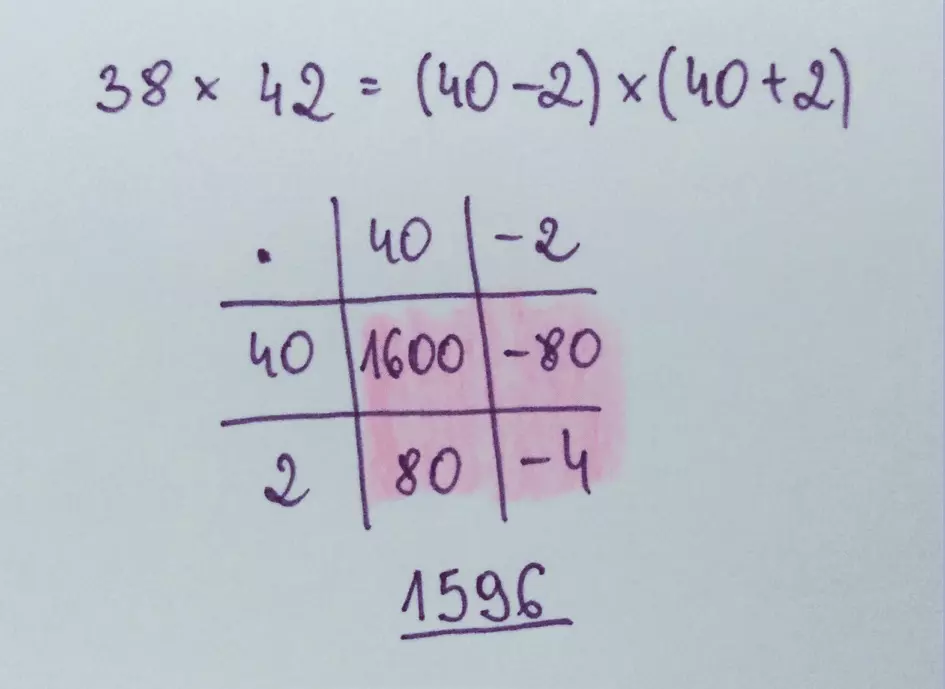 38 × 42 = (40 - 2) × (40 + 2)
. 40 -2
40 1600 -80
2 80 -4
1596